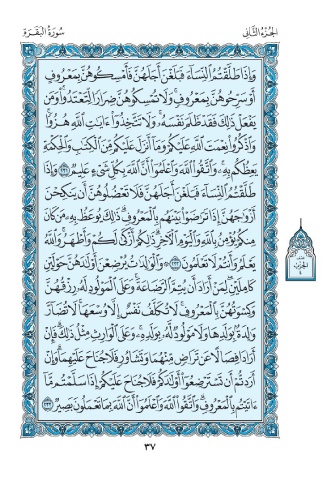 الجزء الثاني
سورة البقرة
وَإِذَا طَلَّقْتُمُ ٱلنِّسَآءَ فَبَلَغْنَ أَجَلَهُنَّ فَأَمْسِكُوهُنَّ بِمَعْرُوفٍ
أَوْ سَرِّحُوهُنَّ بِمَعْرُوفٍۚ وَلَا تُمْسِكُوهُنَّ ضِرَارًا لِّتَعْتَدُوا۟ۚ وَمَن
يَفْعَلْ ذَٰلِكَ فَقَدْ ظَلَمَ نَفْسَهُۥۚ وَلَا تَتَّخِذُوٓا۟ ءَايَٰتِ ٱللَّهِ هُزُوًاۚ
وَٱذْكُرُوا۟ نِعْمَتَ ٱللَّهِ عَلَيْكُمْ وَمَآ أَنزَلَ عَلَيْكُم مِّنَ ٱلْكِتَٰبِ وَٱلْحِكْمَةِ
يَعِظُكُم بِهِۦۚ وَٱتَّقُوا۟ ٱللَّهَ وَٱعْلَمُوٓا۟ أَنَّ ٱللَّهَ بِكُلِّ شَىْءٍ عَلِيمٌ ٢٣١ وَإِذَا
طَلَّقْتُمُ ٱلنِّسَآءَ فَبَلَغْنَ أَجَلَهُنَّ فَلَا تَعْضُلُوهُنَّ أَن يَنكِحْنَ
أَزْوَٰجَهُنَّ إِذَا تَرَٰضَوْا۟ بَيْنَهُم بِٱلْمَعْرُوفِۗ ذَٰلِكَ يُوعَظُ بِهِۦ مَن كَانَ
مِنكُمْ يُؤْمِنُ بِٱللَّهِ وَٱلْيَوْمِ ٱلْءَاخِرِۗ ذَٰلِكُمْ أَزْكَىٰ لَكُمْ وَأَطْهَرُۗ وَٱللَّهُ
يَعْلَمُ وَأَنتُمْ لَا تَعْلَمُونَ ٢٣٢ ۞ وَٱلْوَٰلِدَٰتُ يُرْضِعْنَ أَوْلَٰدَهُنَّ حَوْلَيْنِ
كَامِلَيْنِۖ لِمَنْ أَرَادَ أَن يُتِمَّ ٱلرَّضَاعَةَۚ وَعَلَى ٱلْمَوْلُودِ لَهُۥ رِزْقُهُنَّ
وَكِسْوَتُهُنَّ بِٱلْمَعْرُوفِۚ لَا تُكَلَّفُ نَفْسٌ إِلَّا وُسْعَهَاۚ لَا تُضَآرَّ
وَٰلِدَةٌۢ بِوَلَدِهَا وَلَا مَوْلُودٌ لَّهُۥ بِوَلَدِهِۦۚ وَعَلَى ٱلْوَارِثِ مِثْلُ ذَٰلِكَۗ فَإِنْ
أَرَادَا فِصَالًا عَن تَرَاضٍ مِّنْهُمَا وَتَشَاوُرٍ فَلَا جُنَاحَ عَلَيْهِمَاۗ وَإِنْ
أَرَدتُّمْ أَن تَسْتَرْضِعُوٓا۟ أَوْلَٰدَكُمْ فَلَا جُنَاحَ عَلَيْكُمْ إِذَا سَلَّمْتُم مَّآ
ءَاتَيْتُم بِٱلْمَعْرُوفِۗ وَٱتَّقُوا۟ ٱللَّهَ وَٱعْلَمُوٓا۟ أَنَّ ٱللَّهَ بِمَا تَعْمَلُونَ بَصِيرٌ ٢٣٣
٣٧